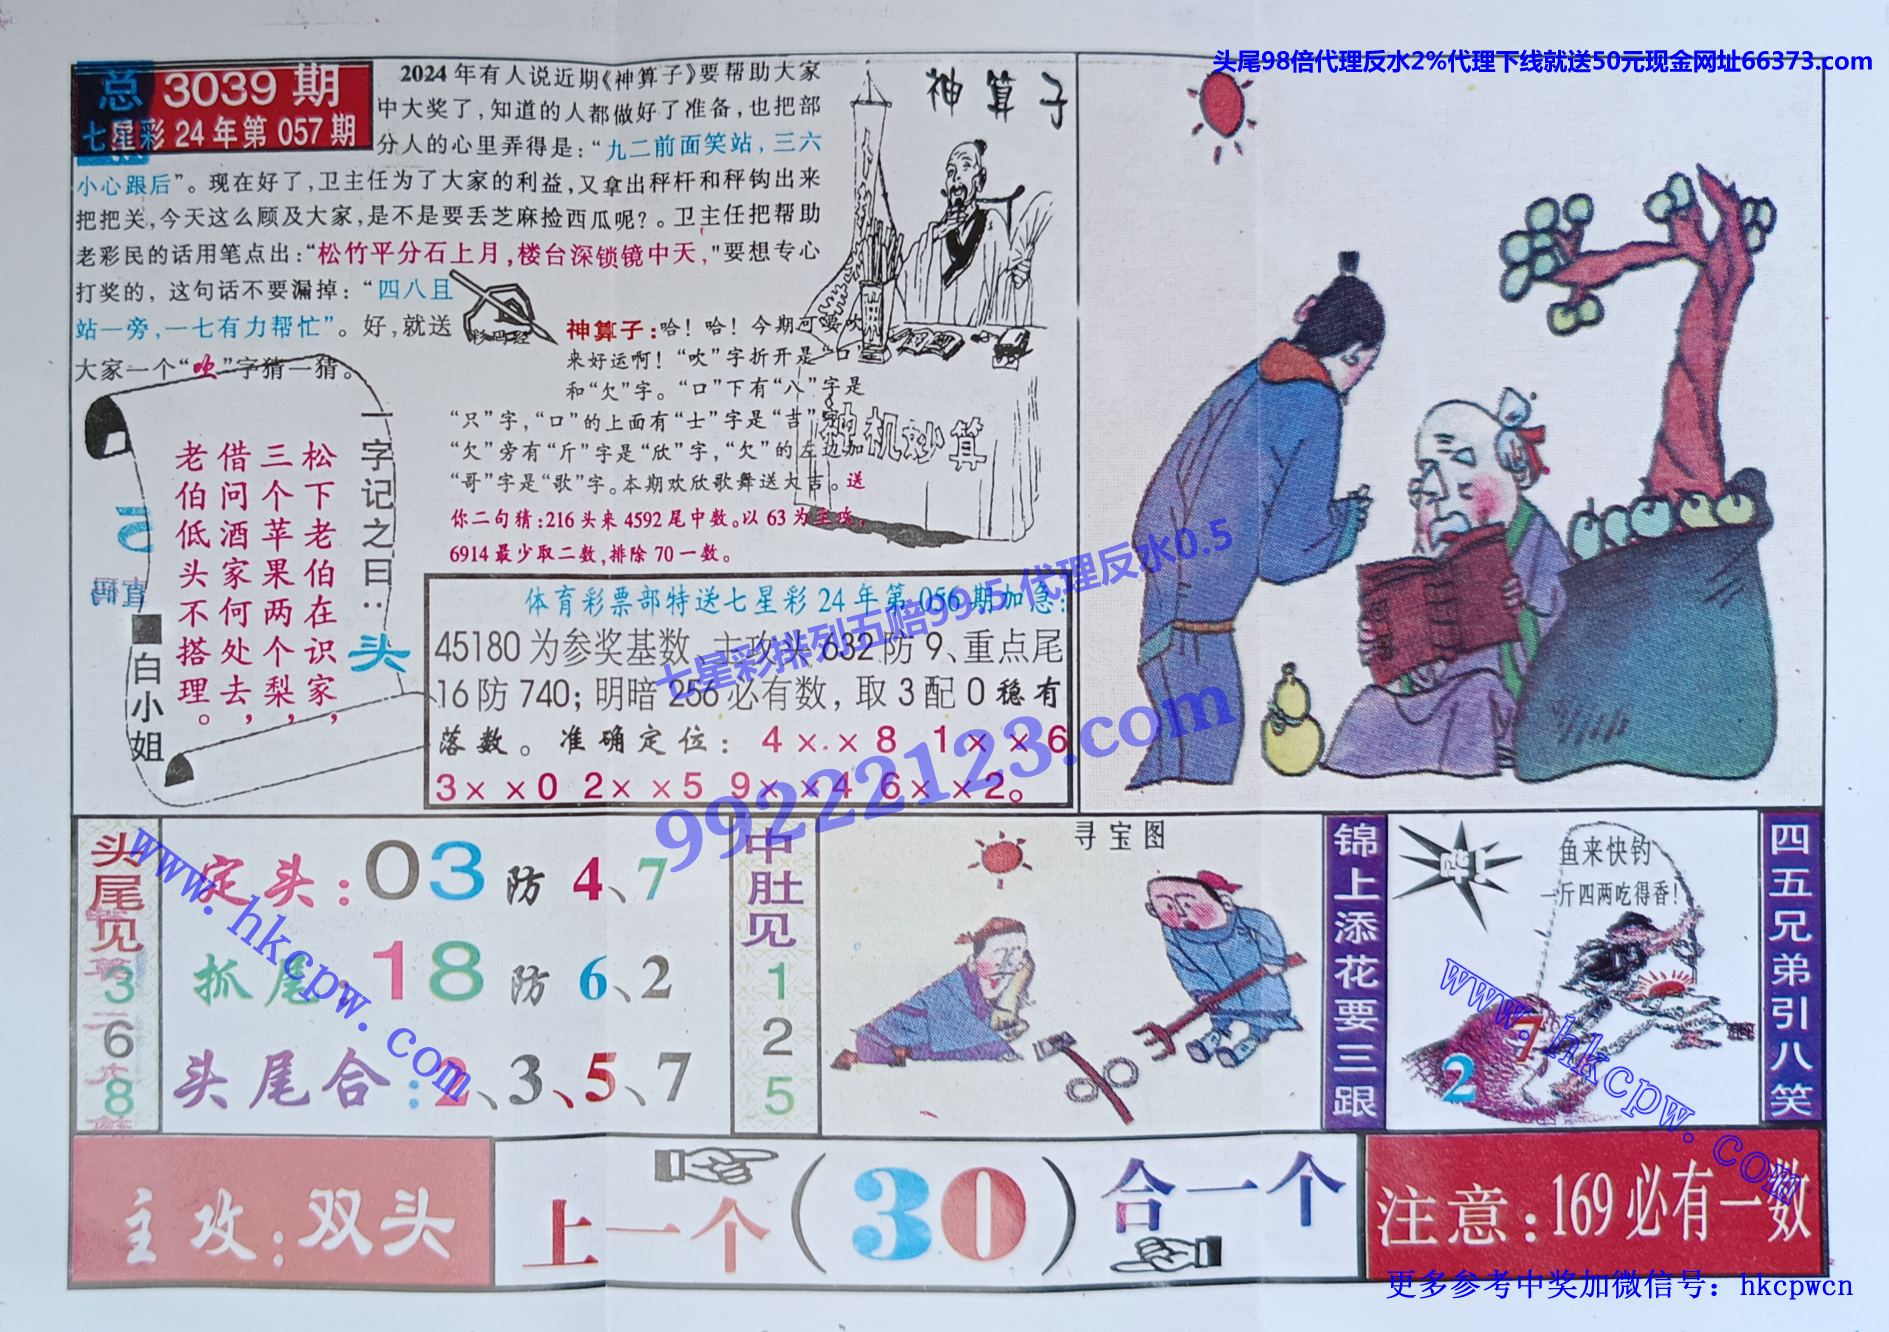 头尾98倍代理反水2%代理下线就送50元现金网址66373.com
总 3039 期
七星彩 24 年第 057 期
2024 年有人说近期《神算子》要帮助大家
中大奖了，知道的人都做好了准备，也把部
分人的心里弄得是：“九二前面笑站，三六
小心跟后”。现在好了，卫主任为了大家的利益，又拿出秤杆和秤钩出来
把把关，今天这么顾及大家，是不是要丢芝麻捡西瓜呢？。卫主任把帮助
老彩民的话用笔点出：“松竹平分石上月，楼台深锁镜中天，"要想专心
打奖的，这句话不要漏掉：“四八且
站一旁，一七有力帮忙”。好，就送
大家一个“吹”字猜一猜。
彩码经
神算子
神算子：哈！哈！今期可要吹
来好运啊！“吹”字折开是“口”
和“欠”字。“口”下有“八”字是
“只”字，“口”的上面有“士”字是“吉”字，
“欠”旁有“斤”字是“欣”字，“欠”的左边加
“哥”字是“歌”字。本期欢欣歌舞送大吉。送
你二句猜：216 头来 4592 尾中数。以 63 为主攻，
6914 最少取二数，排除 70 一数。
神机妙算
一字记之曰：头
松下老伯在识家，
三个苹果两个梨，
借问酒家何处去，
老伯低头不搭理。
白小姐
体育彩票部特送七星彩 24 年第 056 期加急：
45180 为参奖基数、主攻头 632 防 9、重点尾
16 防 740；明暗 256 必有数，取 3 配 0 稳有
落数。准确定位：4××8 1××6
3××0 2××5 9××4 6××2。
七星彩排列五赔99.5 代理反水0.5
99222123.com
头尾见
3
6
8
定头：03 防 4、7
抓尾：18 防 6、2
头尾合：2、3、5、7
www.hkcpw.com
中肚见
1
2
5
寻宝图
锦上添花要三跟
鱼来快钓
一斤四两吃得香！
2 7
www.hkcpw.com
四五兄弟引八笑
主攻：双头
上一个（30）合一个
注意：169 必有一数
更多参考中奖加微信号：hkcpwcn